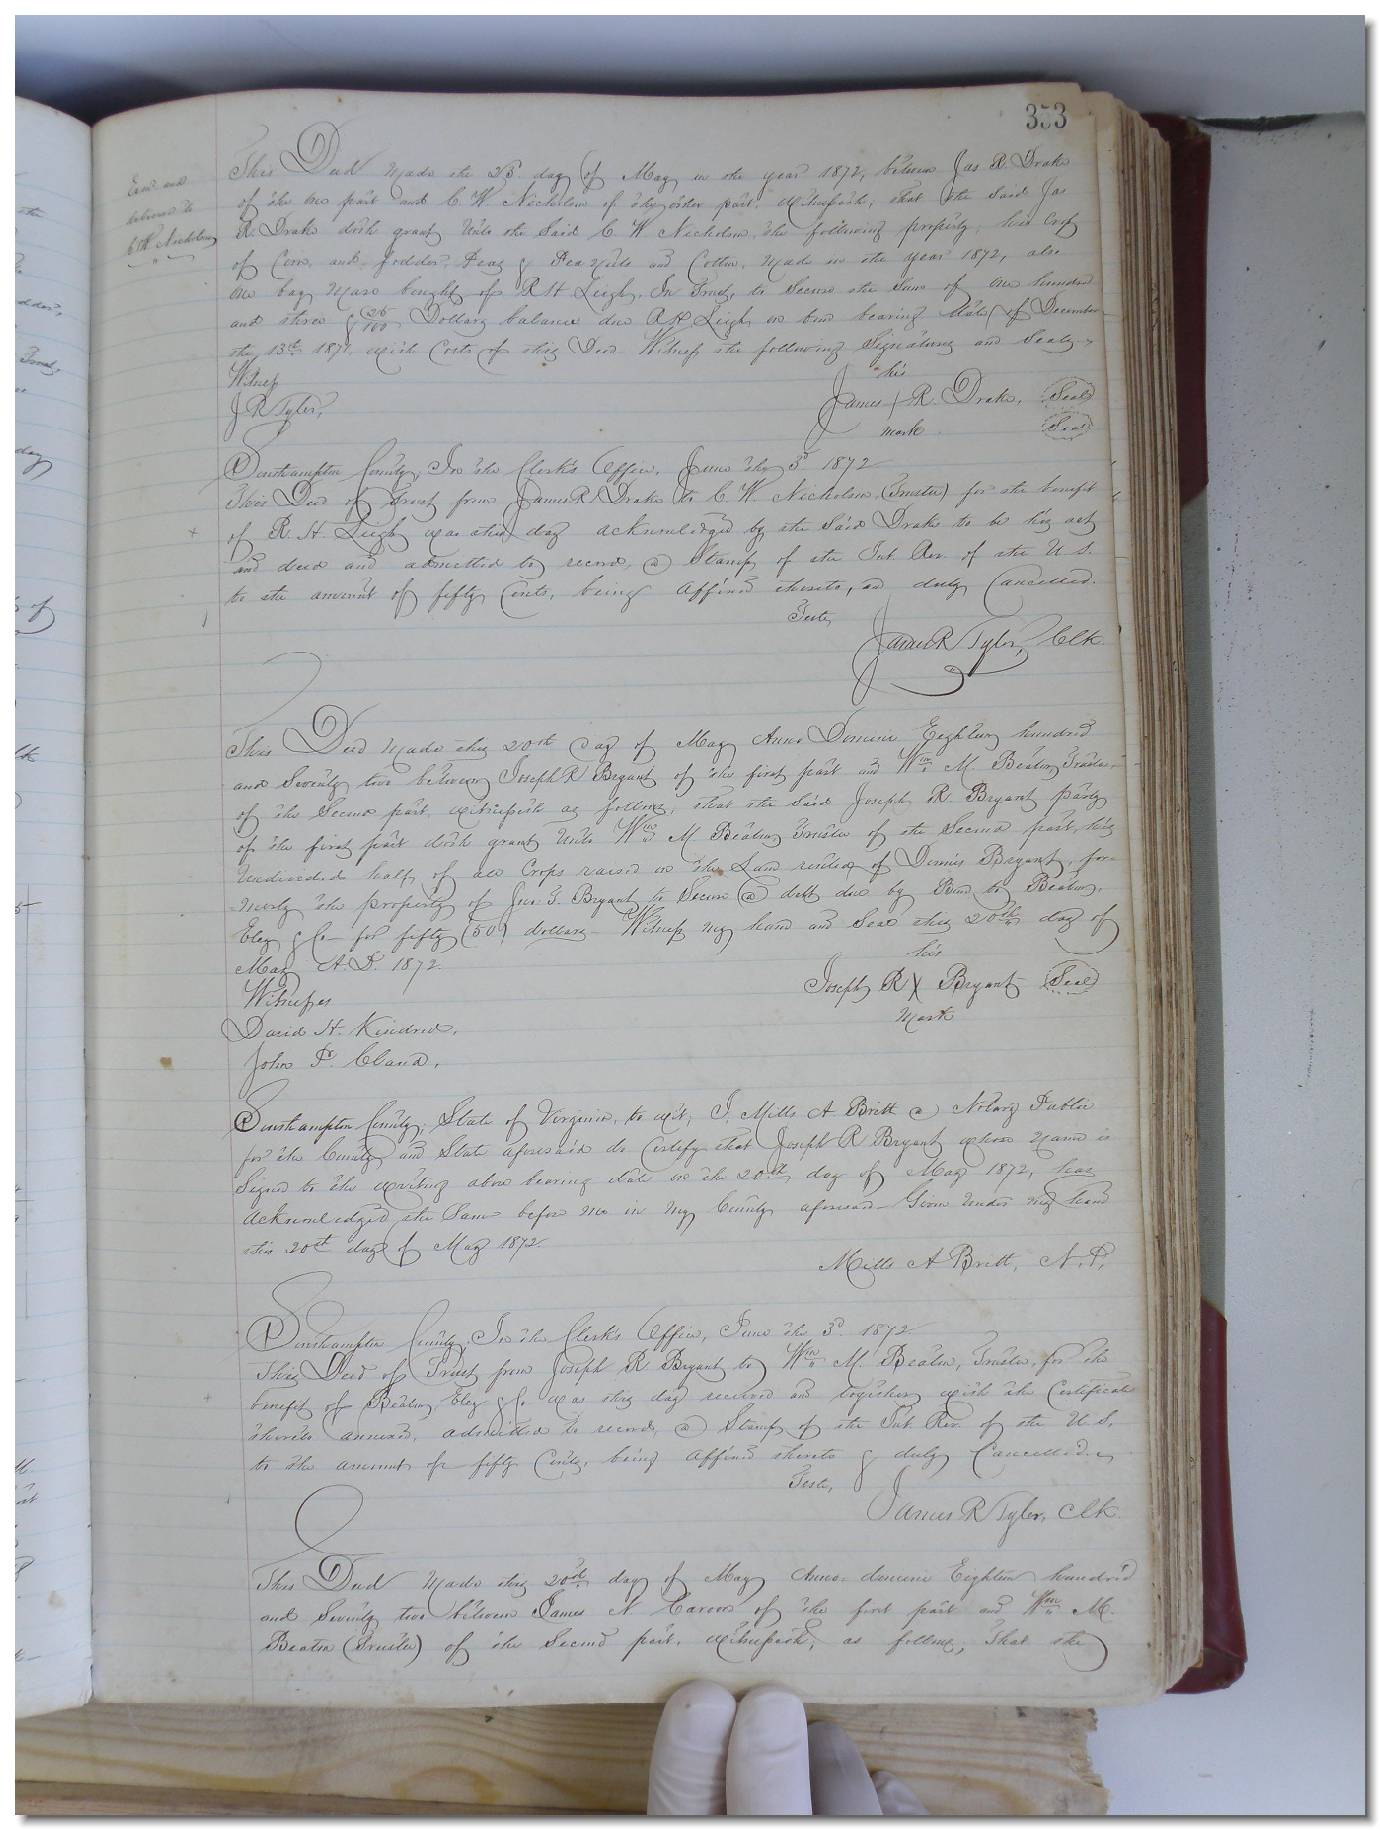 353
Exd and
delivered to
C W Nicholson
This Deed made the 23d day of May in the year 1872, between Jas R Drake
of the one part and C. W. Nicholson of the other part, witnesseth, that the Said Jas
R. Drake doth grant unto the Said C W Nicholson the following property, his crop
of Corn, and fodder, Peas & Pea nuts and Cotton, made in the year 1872, also
one bay mare bought of R H Leigh, In Trust, to Secure the Sum of one hundred
and three & 26/100 Dollars balance due R H Leigh on bond bearing date of December
the 13th 1871, with Costs of this Deed Witness the following Signatures and Seals,
Witness
J R Tyler,
his
James + R. Drake, Seal
mark Seal
Southampton County, In the Clerk's Office, June the 3d 1872
This Deed of Trust from James R Drake to C. W. Nicholson (Trustee) for the benefit
of R. H. Leigh was this day acknowledged by the Said Drake to be his act
and deed and admitted to record, a Stamp of the Int. Rev. of the U S.
to the amount of fifty Cents, being affixed thereto, and duly Cancelled.
Teste,
James R Tyler, Clk.
This Deed made this 20th day of May Anno Domini Eighteen hundred
and Seventy two between Joseph R Bryant of the first part and Wm M. Beaton Trustee
of the Second part, witnesseth as follows, that the Said Joseph R. Bryant party
of the first part doth grant unto Wm M Beaton Trustee of the Second part, his
undivided half of all Crops raised on the Land rented of Dennis Bryant, for-
merly the property of Jno. T. Bryant to Secure a debt due by Bond to Beaton,
Eley & Co for fifty (50) dollars- Witness my hand and Seal this 20th day of
May A.D. 1872.
Witnesses
David H. Kindred,
John P. Claud,
his
Joseph R X Bryant Seal
mark
Southampton County, State of Virginia, to wit, I, Mills A Britt a Notary Public
for the County and State aforesaid do Certify that Joseph R Bryant whose name is
Signed to the writing above bearing date on the 20th day of May 1872, has
acknowledged the Same before me in my County aforesaid- Given under my hand
this 20th day of May 1872.
Mills A Britt, N.P.
Southampton County, In the Clerk's Office, June the 3d. 1872
This Deed of Trust from Joseph R Bryant to Wm M. Beaton, Trustee, for the
benefit of Beaton, Eley & Co. was this day received and together with the Certificate
thereto annexed, admitted to record, a Stamp of the Int. Rev. of the U S.
to the amount of fifty Cents, being affixed thereto & duly Cancelled.
Teste,
James R Tyler, Clk.
This Deed made this 20th day of May Anno domini Eighteen hundred
and Seventy two between James N. of the first part and Wm M.
Beaton (Trustee) of the Second part, witnesseth, as follows, That the